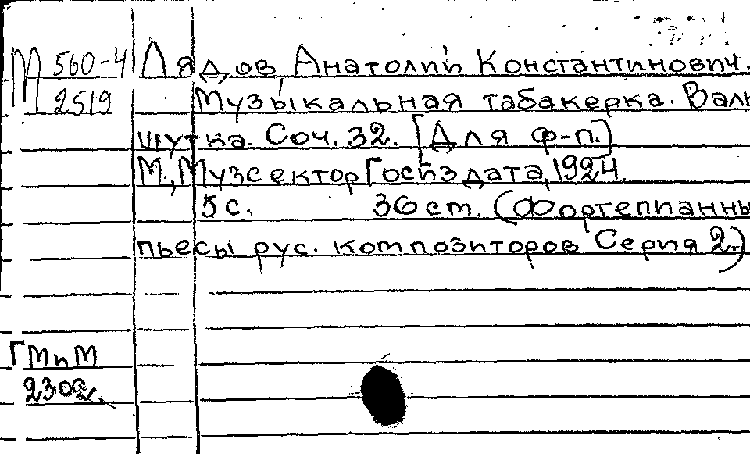 М 560-4 Лядов, Анатолий Константинович.
2519 Музыкальная табакерка. Валь
шутка. Соч. 32. [Для ф-п.]
М., Музсектор Госиздата, 1924.
5 с. 30 cm. (Фортепианны
пьесы рус. композиторов Серия 2)
ГМпМ
2302г.